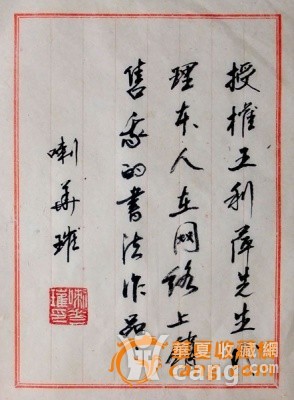 授權王利萍先生代
理本人在网络上銷
售我的書法作品
喇華璀
華夏收藏網
cang.com